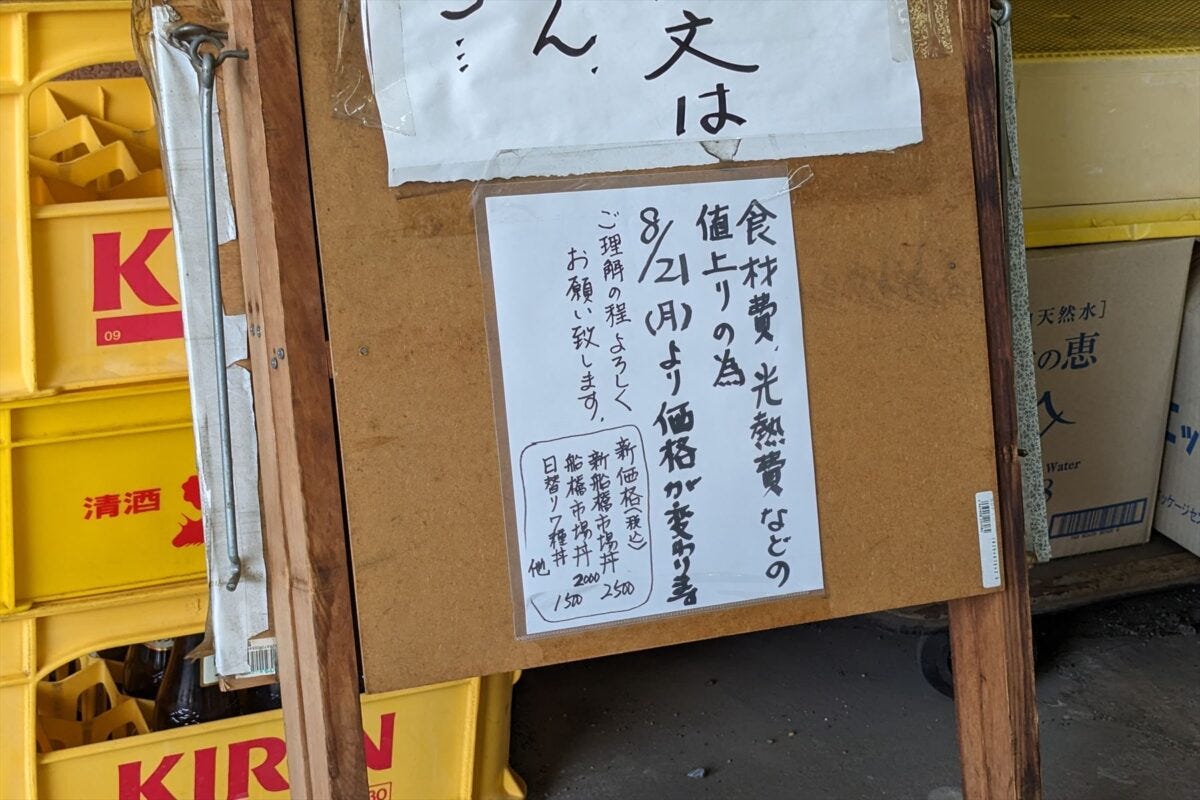 文は
ん、
食材費、光熱費などの
値上りの為
8/21(月)より価格が変わり寿
ご理解の程よろしく
お願い致します。
新価格(税込)
新船橋市場丼 2500
船橋市場丼 2000
日替り7種丼 1500
他
KI
09
清酒
KIRIN
30
天然水]
の恵
Water